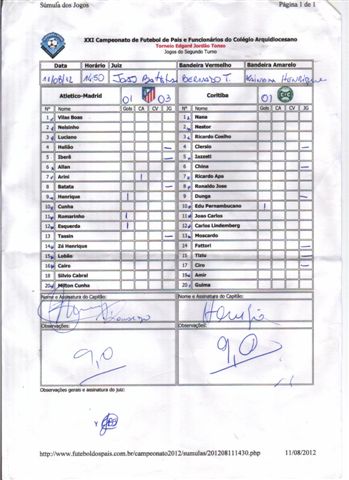 Súmula dos Jogos Página 1 de 1
XXI Campeonato de Futebol de Pais e Funcionários do Colégio Arquidiocesano
Torneio Edgard Jordão Tonso
Jogos do Segundo Turno
Data Horário Juiz Bandeira Vermelho Bandeira Amarelo
11/08/12 1450 João Batista BERNARDO T. Henrique
Atletico-Madrid 01 03 Coritiba 01
Nº Nome Gols CA CV JG Nº Nome Gols CA CV JG
1 Vilas Boas 1 Nana
2 Nelsinho 2 Nestor
3 Luciano 3 Ricardo Coelho
4 Hailão 4 Clersio
5 Iberê 5 Jazzoti
6 Allan 6 China
7 Arini 7 Ricardo Apa
8 Batata 8 Ronaldo Jose
9 Henrique 9 Dunga
10 Cunha 10 Edu Pernambucano
11 Ramarinho 11 Joao Carlos
12 Esquerda 12 Carlos Lindemberg
13 Tassin 13 Moscardo
14 Zé Henrique 14 Fattori
15 Lobão 15 Tiziu
16 Cairo 17 Ciro
18 Silvio Cabral 19 Amir
20 Milton Cunha 20 Guima
Nome e Assinatura do Capitão: Nome e Assinatura do Capitão:
Observações: Observações:
9,0 9,0
Observações gerais e assinatura do juiz:
http://www.futeboldospais.com.br/campeonato2012/sumulas/201208111430.php 11/08/2012